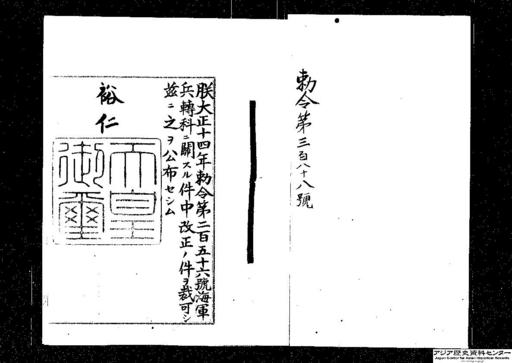 勅令第三百八十八號
朕大正十四年勅令第二百五十六號海軍
兵轉科ニ關スル件中改正ノ件ヲ裁可シ
茲ニ之ヲ公布セシム
裕仁
天皇
御璽
アジア歴史資料センター
Japan Center for Asian Historical Records